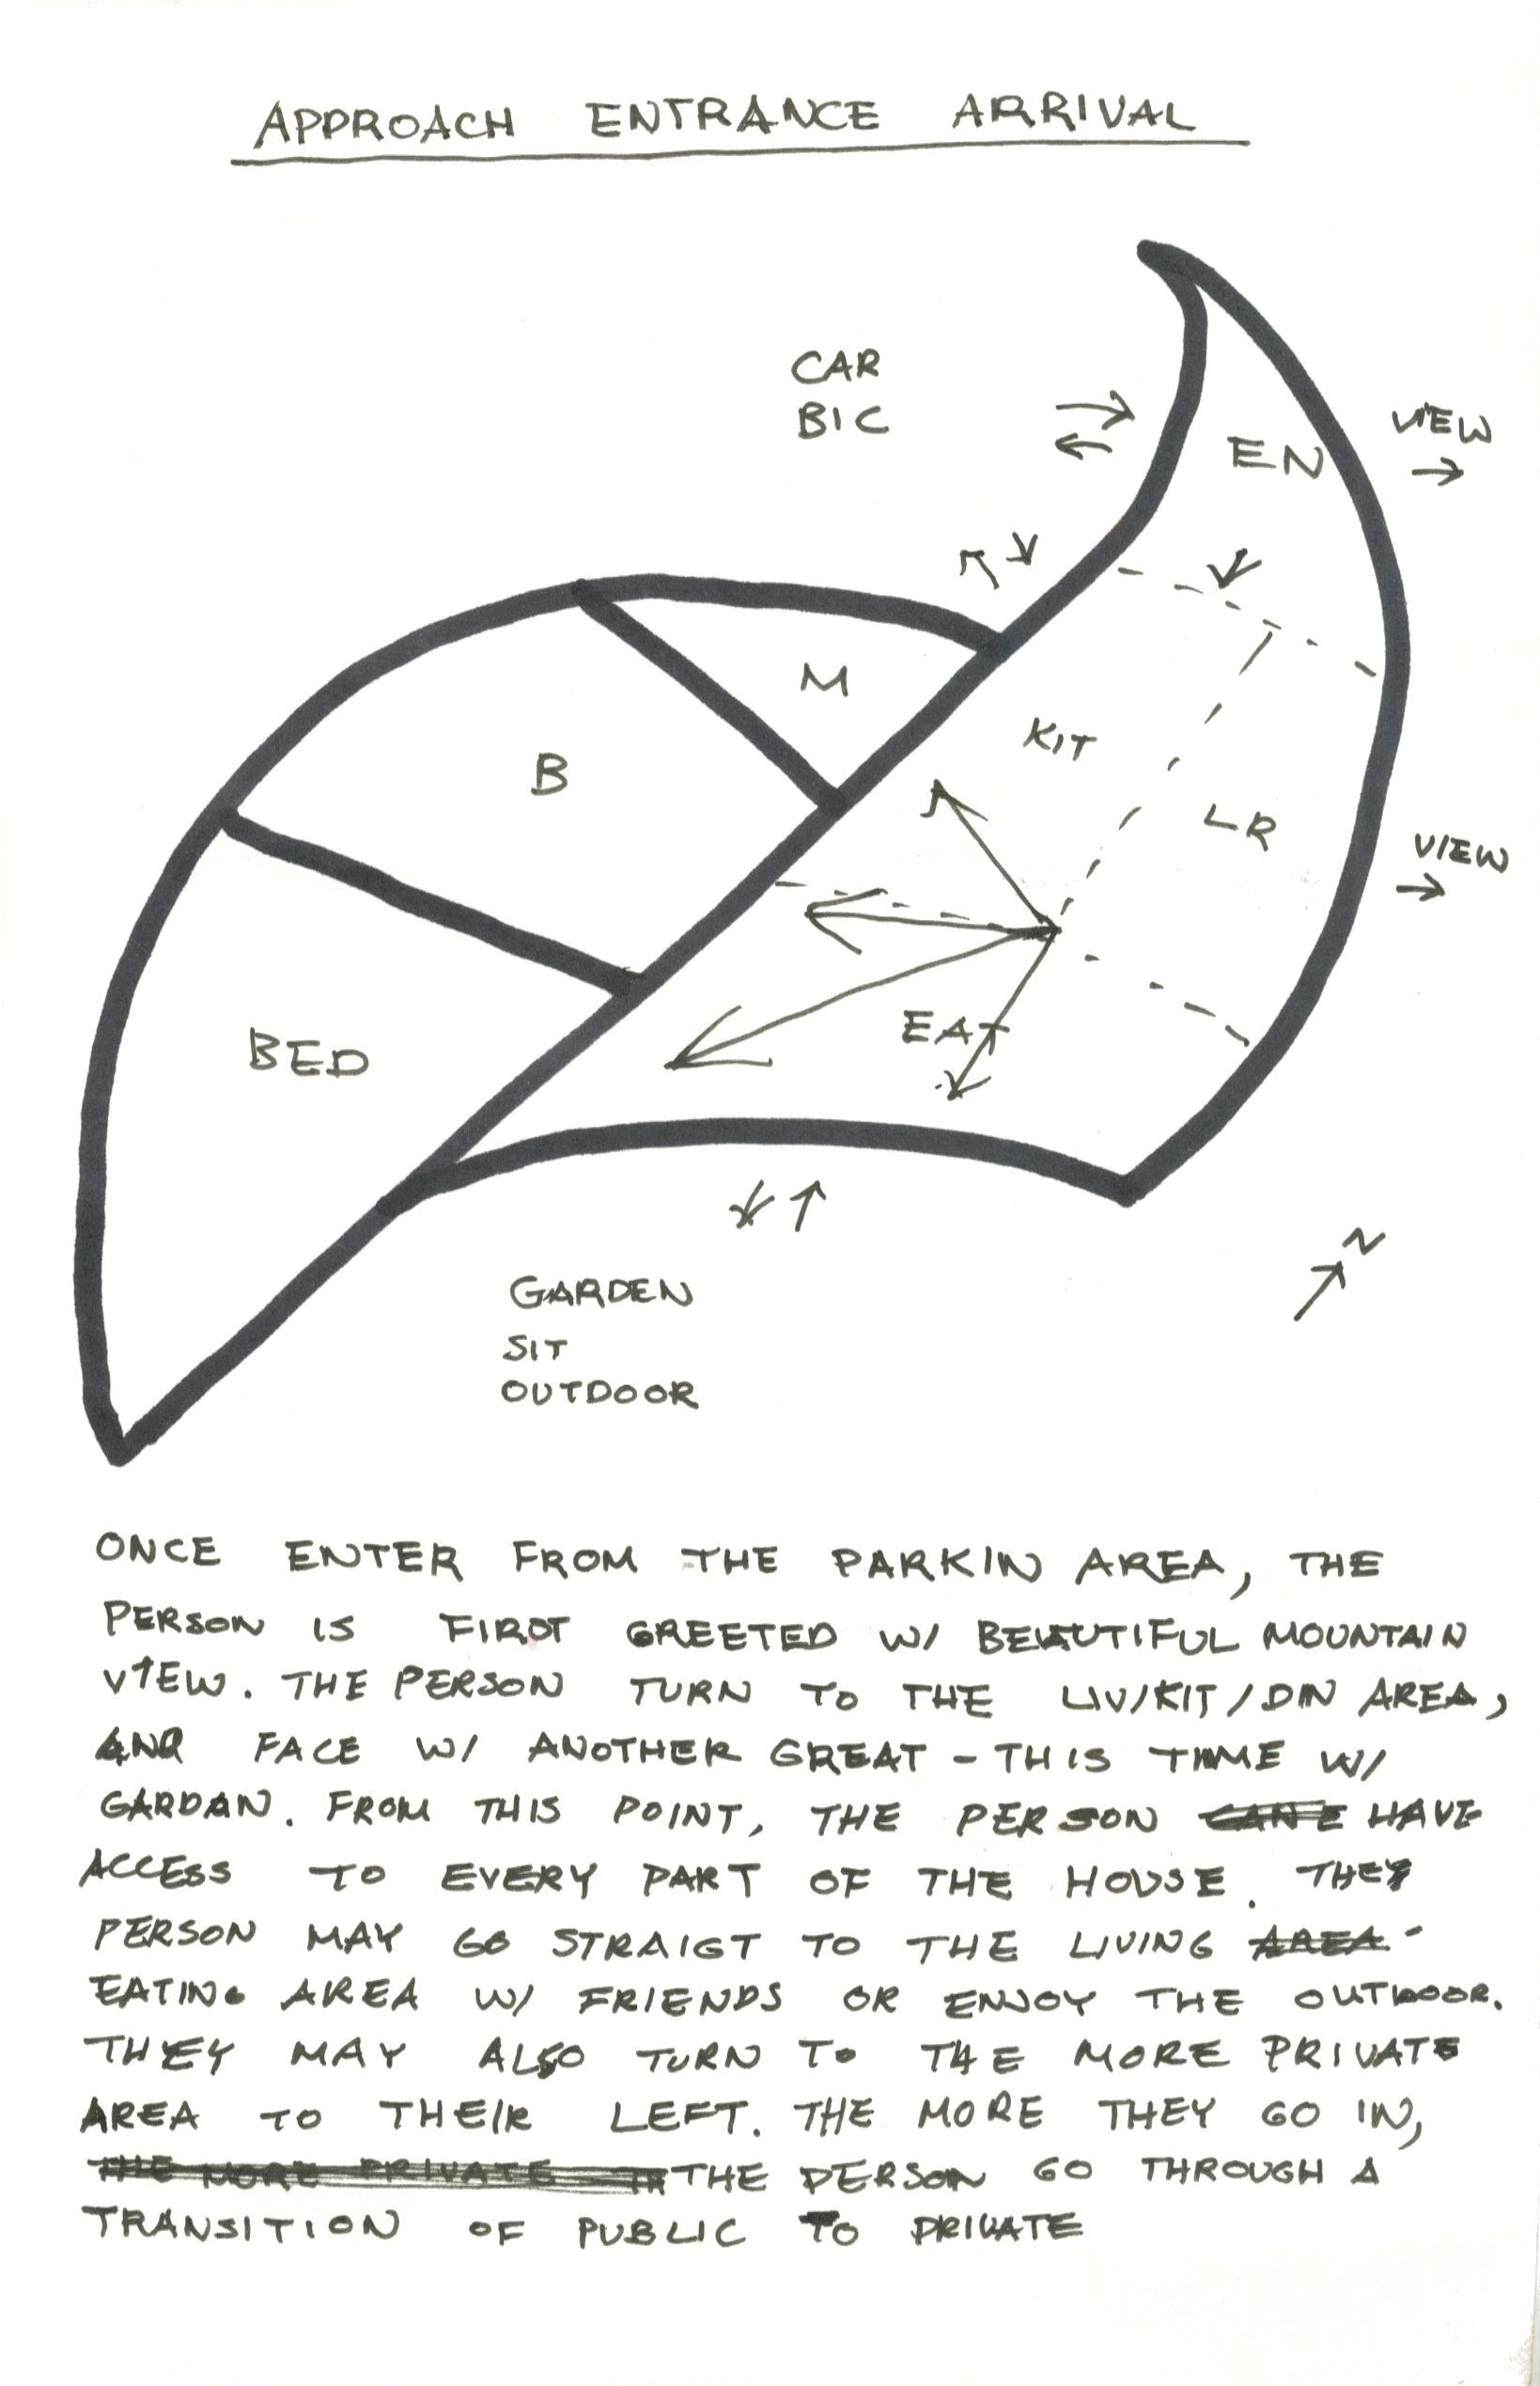 APPROACH ENTRANCE ARRIVAL
CAR
BIC
EN
VIEW
M
KIT
B
LR
VIEW
EAT
BED
N
GARDEN
SIT
OUTDOOR
ONCE ENTER FROM THE PARKIN AREA, THE
PERSON IS FIRST GREETED W/ BEAUTIFUL MOUNTAIN
VIEW. THE PERSON TURN TO THE LIV/KIT/DIN AREA,
AND FACE W/ ANOTHER GREAT - THIS TIME W/
GARDAN. FROM THIS POINT, THE PERSON HAVE
ACCESS TO EVERY PART OF THE HOUSE. THEY
PERSON MAY GO STRAIGT TO THE LIVING AREA -
EATING AREA W/ FRIENDS OR ENJOY THE OUTDOOR.
THEY MAY ALSO TURN TO THE MORE PRIVATE
AREA TO THEIR LEFT. THE MORE THEY GO IN,
THE MORE PRIVATE THE PERSON GO THROUGH A
TRANSITION OF PUBLIC TO PRIVATE